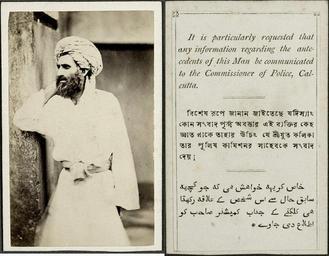 It is particularly requested that
any information regarding the ante-
cedents of this Man be communicated
to the Commissioner of Police, Cal-
cutta.
বিশেষ রূপে জানান জাইতেছে যদিস্যাৎ
কোন সংবাদ পূর্ব্ব অবস্তার এই ব্যক্তির কেহ
তাহার উচিৎ যে শ্রীযুত কলিকা
তার পুলিষ কমিশনর সাহেবকে সংবাদ
দেয়;
خاص کر یہہ خواهش هی کہ جو کچهہ
سابق حال سے اس شخص کے علاقہ رکهتا
هی کلکتے کے جناب کمیشنر صاحب کو
اطلاع دی جاوے